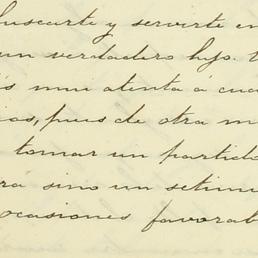 buscarte y servirte en
un verdadero hijo.
is mui atenta á cua
ias, pues de otra m
tomar un partido
ra sino un setimi
ocasiones favorab